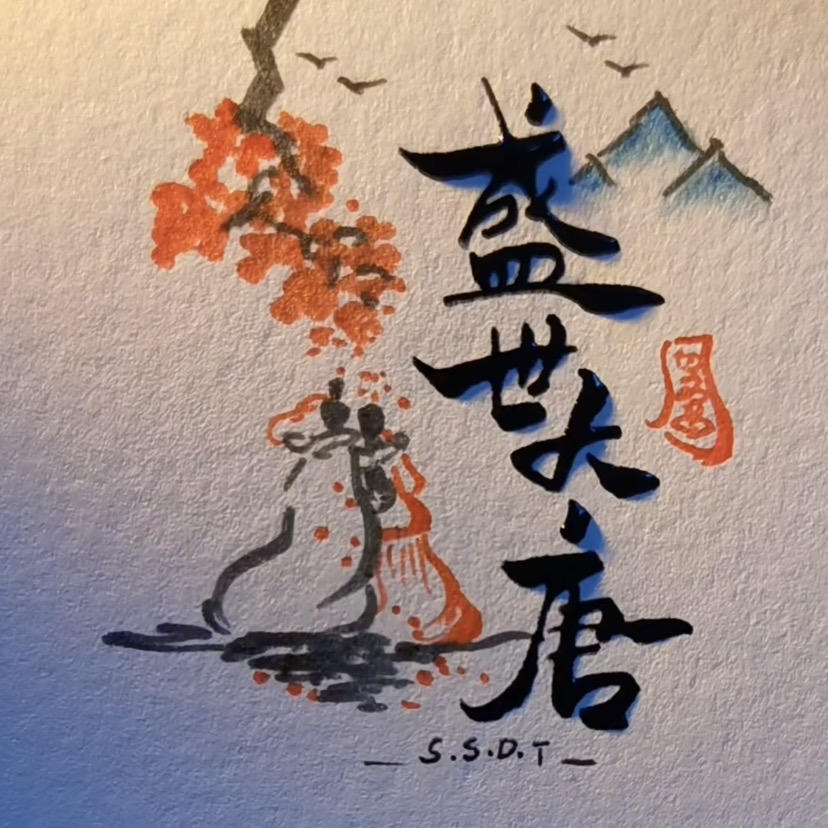 盛世大唐
— S.S.D.T —